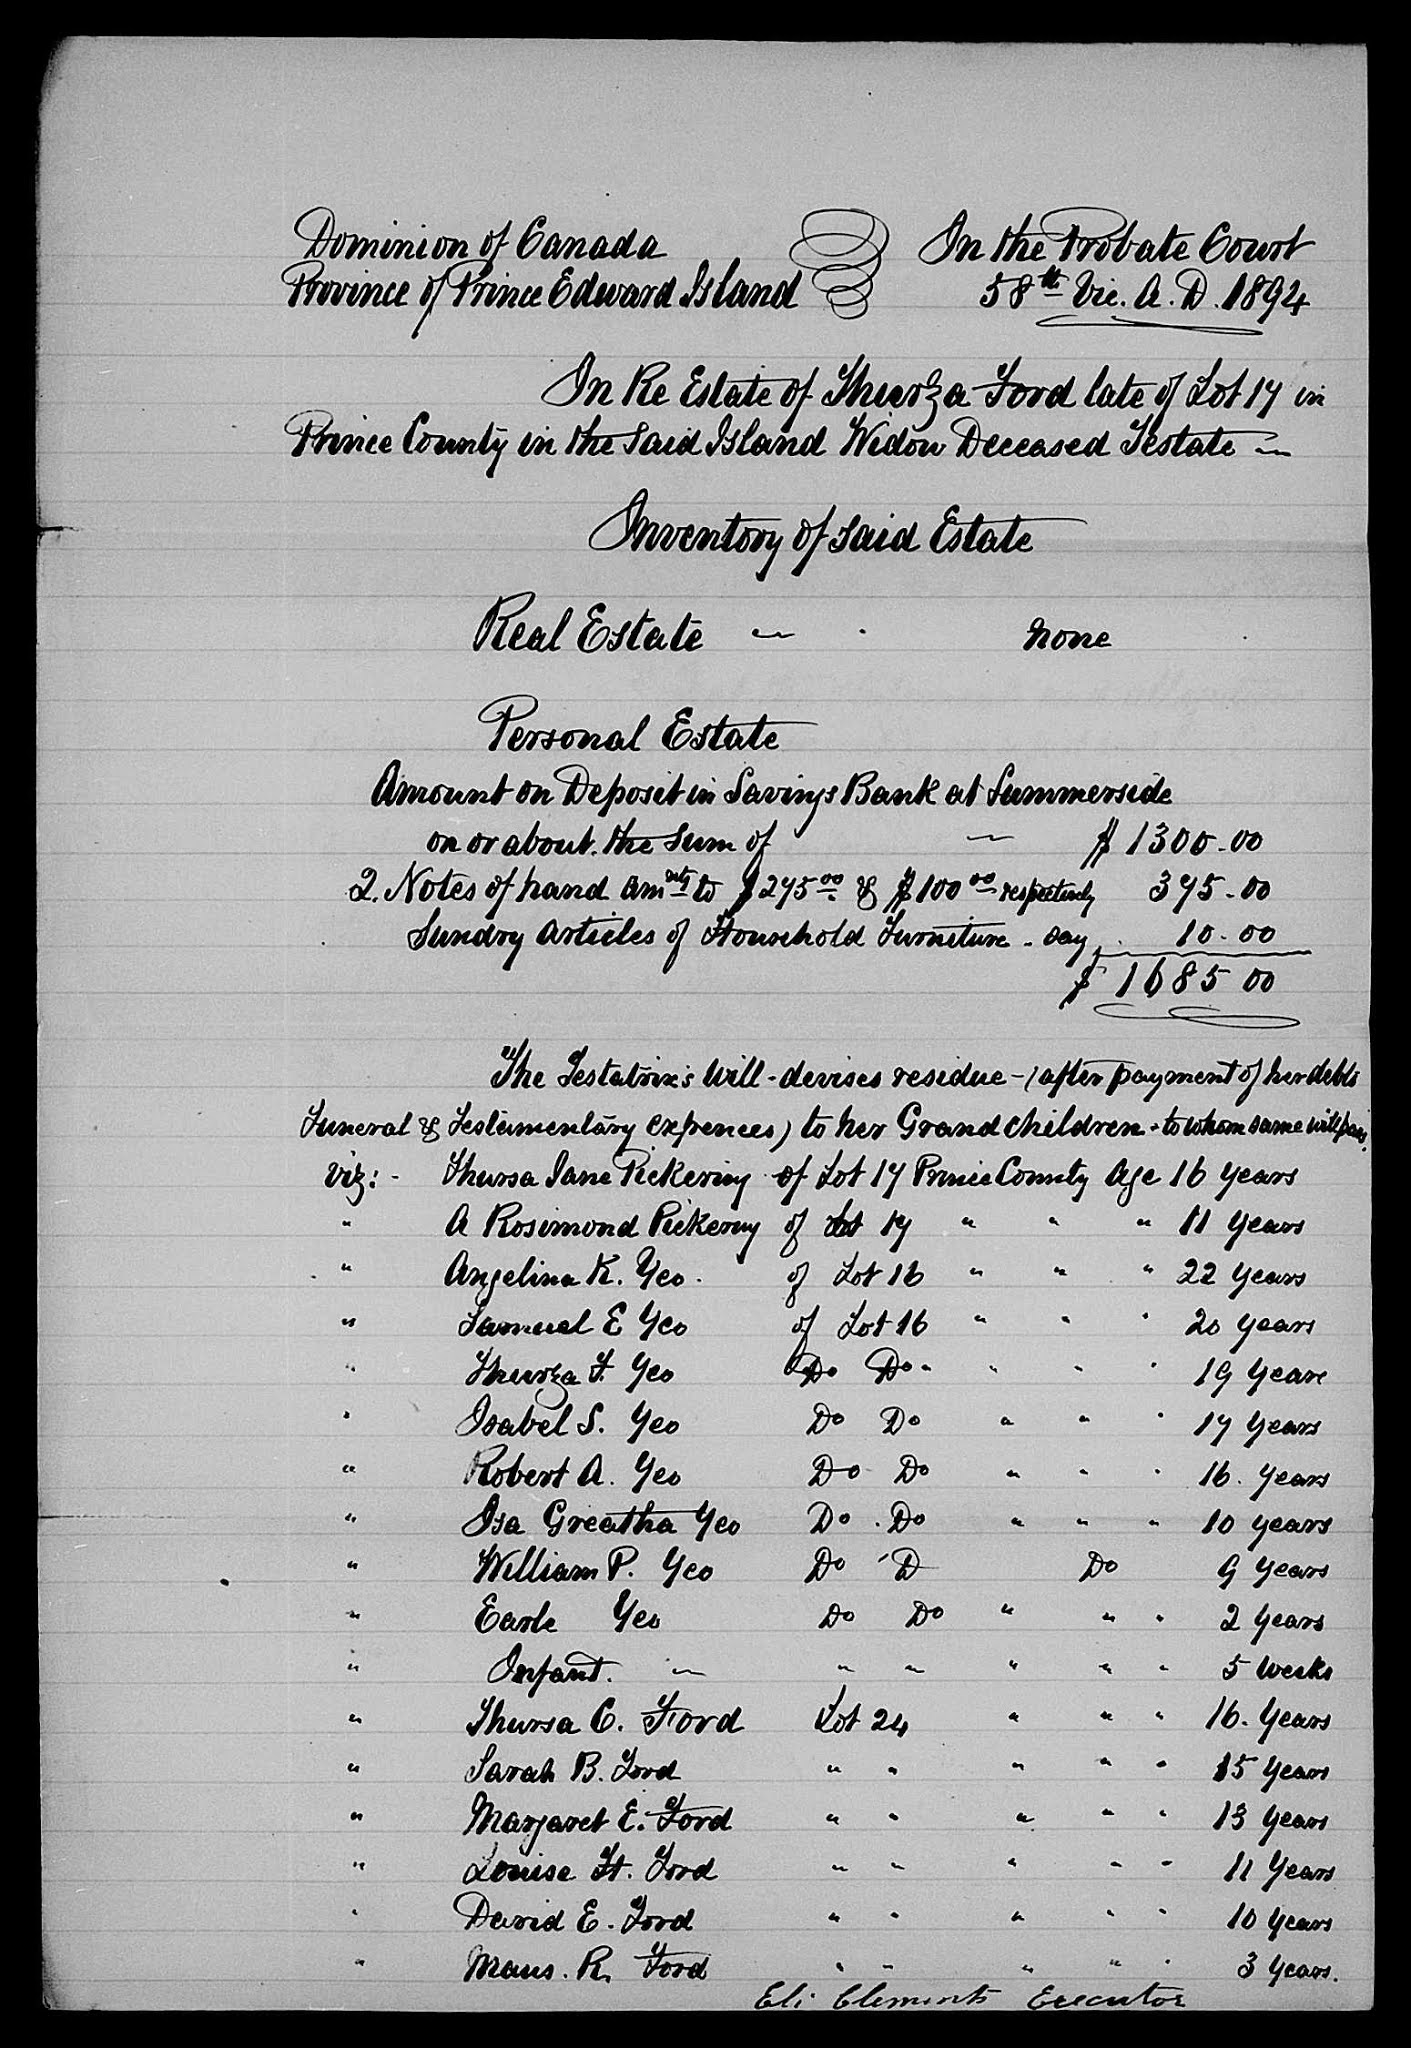 Dominion of Canada
Province of Prince Edward Island
In the Probate Court
58th Vic. A. D. 1894
In Re Estate of Thurza Ford late of Lot 17 in
Prince County in the said Island Widow Deceased Testate
Inventory of said Estate
Real Estate none
Personal Estate
Amount on Deposit in Savings Bank at Summerside
on or about the sum of $ 1300.00
2. Notes of hand amtg to $275.00 & $100.00 respectively 375.00
Sundry articles of Household Furniture - say 10.00
$ 1685 00
The Testatrix's Will - devises residue - (after payment of her debts
Funeral & Testamentary expences) to her Grandchildren - to whom same will
viz: - Thursa Jane Pickering of Lot 17 Prince County Age 16 years
" A Rosimond Pickering of Lot 17 " " " 11 years
" Angelina K. Yeo. of Lot 16 " " " 22 years
" Samuel E Yeo of Lot 16 " " " 20 years
" Thurza F. Yeo Do Do " " " 19 years
" Isabel S. Yeo Do Do " " " 17 years
" Robert A. Yeo Do Do " " " 16. years
" Isa Greatha Yeo Do . Do " " " 10 years
" William P. Yeo Do D Do 9 years
" Earle Yeo Do Do " " " 2 years
" Infant. " " " " " 5 weeks
" Thursa C. Ford Lot 24 " " " 16. years
" Sarah B. Ford " " " " " 15 years
" Margaret E. Ford " " " " " 13 years
" Louise H. Ford " " " " " 11 years
" David E. Ford " " " " " 10 years
" R. Ford " " " " " 3 years.
Eli Clements Executor